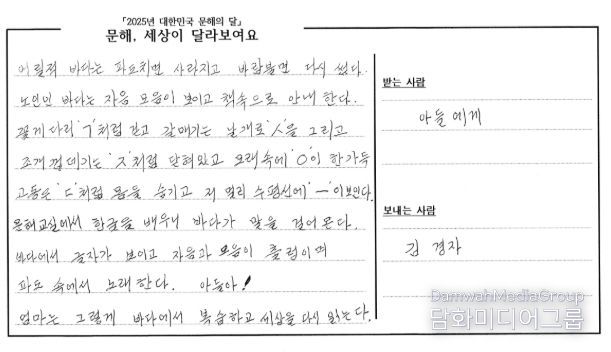 「2025년 대한민국 문해의 달」
문해, 세상이 달라보여요
어릴적 바다는 파도치면 사라지고 바람불면 다시 썼다.
노인인 바다는 자음 모음이 보이고 책속으로 안내 한다.
꽃게 다리 'ㄱ'처럼 걷고 갈매기는 날개로 'ㅅ'을 그리고
조개 껍데기는 'ㅈ'처럼 닫혀있고 모래속에 'ㅇ'이 한가득
고동은 'ㄷ'처럼 몸을 숨기고 저 멀리 수평선에 'ㅡ'이 보인다.
문해교실에서 한글을 배우니 바다가 말을 걸어 온다.
바다에서 글자가 보이고 자음과 모음이 출렁이며
파도 속에서 노래한다. 아들아!
엄마는 그렇게 바다에서 복습하고 세상을 다시 읽는다.
받는 사람
아들에게
보내는 사람
김경자
DamwhaMediaGroup
담화미디어그룹